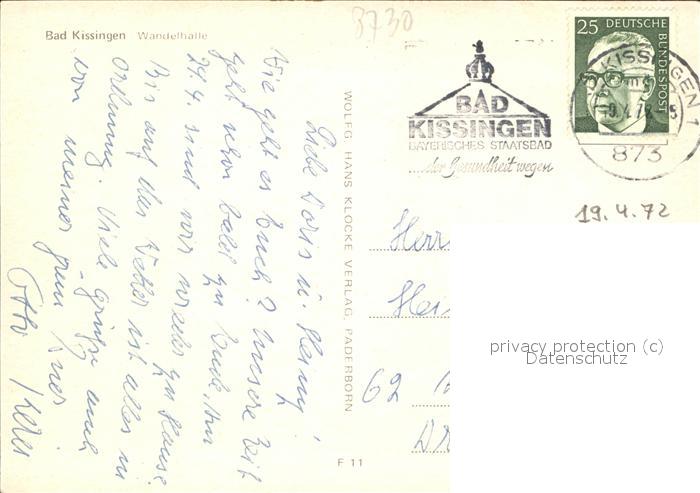 3730
Bad Kissingen Wandelhalle
Liebe Doris u. Heiny!
Wie geht es Euch? Unsere Zeit
geht schon bald zu Ende, am
24.4. sind wir wieder zu Hause
Bis auf das Wetter ist alles in
Ordnung. Viele Grüße auch
von meiner
Otto
WOLFG. HANS KLOCKE VERLAG, PADERBORN
F 11
BAD
KISSINGEN
BAYERISCHES STAATSBAD
...der Gesundheit wegen
25 DEUTSCHE
BUNDESPOST
BAD KISSINGEN 1
873
19.4.72
Herr
Hei
62
privacy protection (c)
Datenschutz